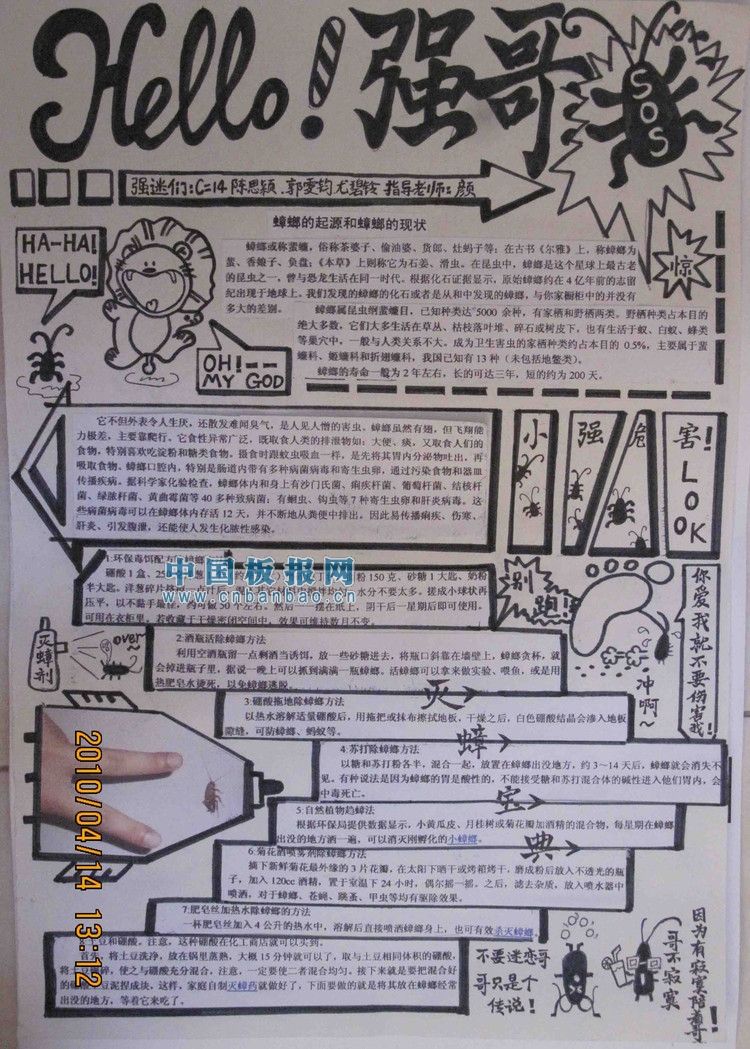 Hello！强哥
SOS
强迷们：C=14 陈思颖.郭雯钧 尤碧铃 指导老师：颜
蟑螂的起源和蟑螂的现状
HA-HA!
HELLO!
OH!--
MY GOD
惊
蟑螂或称蜚蠊，俗称茶婆子、偷油婆、货郎、灶蚂子等；在古书《尔雅》上，称蟑螂为
蜚、香娘子、负盘；《本草》上则称它为石姜、滑虫。在昆虫中，蟑螂是这个星球上最古老
的昆虫之一，曾与恐龙生活在同一时代。根据化石证据显示，原始蟑螂约在4亿年前的志留
纪出现于地球上。我们发现的蟑螂的化石或者是从和中发现的蟑螂，与你家橱柜中的并没有
多大的差别。
蟑螂属昆虫纲蜚蠊目，已知种类达 5000 余种，有家栖和野栖两类。野栖种类占本目的
绝大多数，它们大多生活在草丛、枯枝落叶堆、碎石或树皮下，也有生活于蚁、白蚁、蜂类
等巢穴中，一般与人类关系不大。成为卫生害虫的家栖种类约占本目的 0.5%，主要属于蜚
蠊科、姬蠊科和折翅蠊科，我国已知有 13 种（未包括地鳖类）。
蟑螂的寿命一般为 2 年左右，长的可达三年，短的约为 200 天。
它不但外表令人生厌，还散发难闻臭气，是人见人憎的害虫。蟑螂虽然有翅，但飞翔能
力极差，主要靠爬行。它食性异常广泛，既取食人类的排泄物如：大便、痰，又取食人们的
食物，特别喜欢吃淀粉和糖类食物。摄食时跟蚊吸血一样，是先将其胃内分泌物吐出，再
吸取食物。蟑螂口腔内，特别是肠道内带有多种病菌病毒和寄生虫卵，通过污染食物和器皿
传播疾病。据科学家化验检查，蟑螂体内和身上有沙门氏菌、痢疾杆菌、葡萄杆菌、结核杆
菌、绿脓杆菌、黄曲霉菌等 40 多种致病菌；有蛔虫、钩虫等 7 种寄生虫卵和肝炎病毒。这
些病菌病毒可以在蟑螂体内存活 12 天，并不断地从粪便中排出。因此易传播痢疾、伤寒、
肝炎、引发腹泄，还能使人发生化脓性感染。
小强危害！
LOOK
1:环保毒饵配方
硼酸 1 盒、25
粉 150 克、砂糖 1 大匙、奶粉
半大匙。洋葱
水分不要太多。搓成小球状再
压平，以不黏手
摆在纸上，阴干后一星期后即可使用。
可用在衣柜里
中国板报网
www.cnbanbao.cn
别跑！
你爱我就不要伤害我！
冲啊~
灭蟑剂
over~
2:酒瓶活除蟑螂方法
利用空酒瓶留一点剩酒当诱饵，放一些砂糖进去，将瓶口斜靠在墙壁上，蟑螂贪杯，就
会掉进瓶子里，据说一晚上可以抓到满满一瓶蟑螂。活蟑螂可以拿来做实验、喂鱼，或是用
热肥皂水烫死，以免蟑螂逃脱。
灭蟑宝典
3:硼酸拖地除蟑螂方法
以热水溶解适量硼酸后，用拖把或抹布擦拭地板，干燥之后，白色硼酸结晶会渗入地板
隙缝，可防蟑螂、蚂蚁等。
4:苏打除蟑螂方法
以糖和苏打粉各半，混合一起，放置在蟑螂出没地方，约 3～14 天后，蟑螂就会消失不
见。有种说法是因为蟑螂的胃是酸性的，不能接受糖和苏打混合体的碱性进入他们胃内，会
中毒死亡。
5:自然植物趋蟑法
根据环保局提供数据显示，小黄瓜皮、月桂树或菊花瓣加酒精的混合物，每星期在蟑螂
出没的地方洒一遍，可以消灭刚孵化的小蟑螂。
6:菊花酒喷雾剂除蟑螂方法
摘下新鲜菊花最外缘的 3 片花瓣，在太阳下晒干或烤箱烤干，磨成粉后放入不透光的瓶
子，加入 120cc 酒精，置于室温下 24 小时，偶尔摇一摇。之后，滤去杂质，放入喷水器中
喷洒，对于蟑螂、苍蝇、跳蚤、甲虫等均有驱除效果。
7:肥皂丝加热水除蟑螂的方法
一杯肥皂丝加入 4 公升的热水中，溶解后直接喷洒蟑螂身上，也可有效杀灭蟑螂。
土豆和硼酸。注意，这种硼酸在化工商店就可以买到。
首先，将土豆洗净，放在锅里蒸熟，大概 15 分钟就可以了，取与土豆相同体积的硼酸，
将土豆碾碎，使之与硼酸充分混合，注意，一定要使二者混合均匀。接下来就是要把混合好
的硼酸土豆泥捏成块，这样，家庭自制灭蟑药就做好了，下面要做的就是将其放在蟑螂经常
出没的地方，等着它来吃了。
不要迷恋哥
哥只是个
传说！
哥不寂寞
因为有寂寞陪着哥！
2010/04/14 13:12